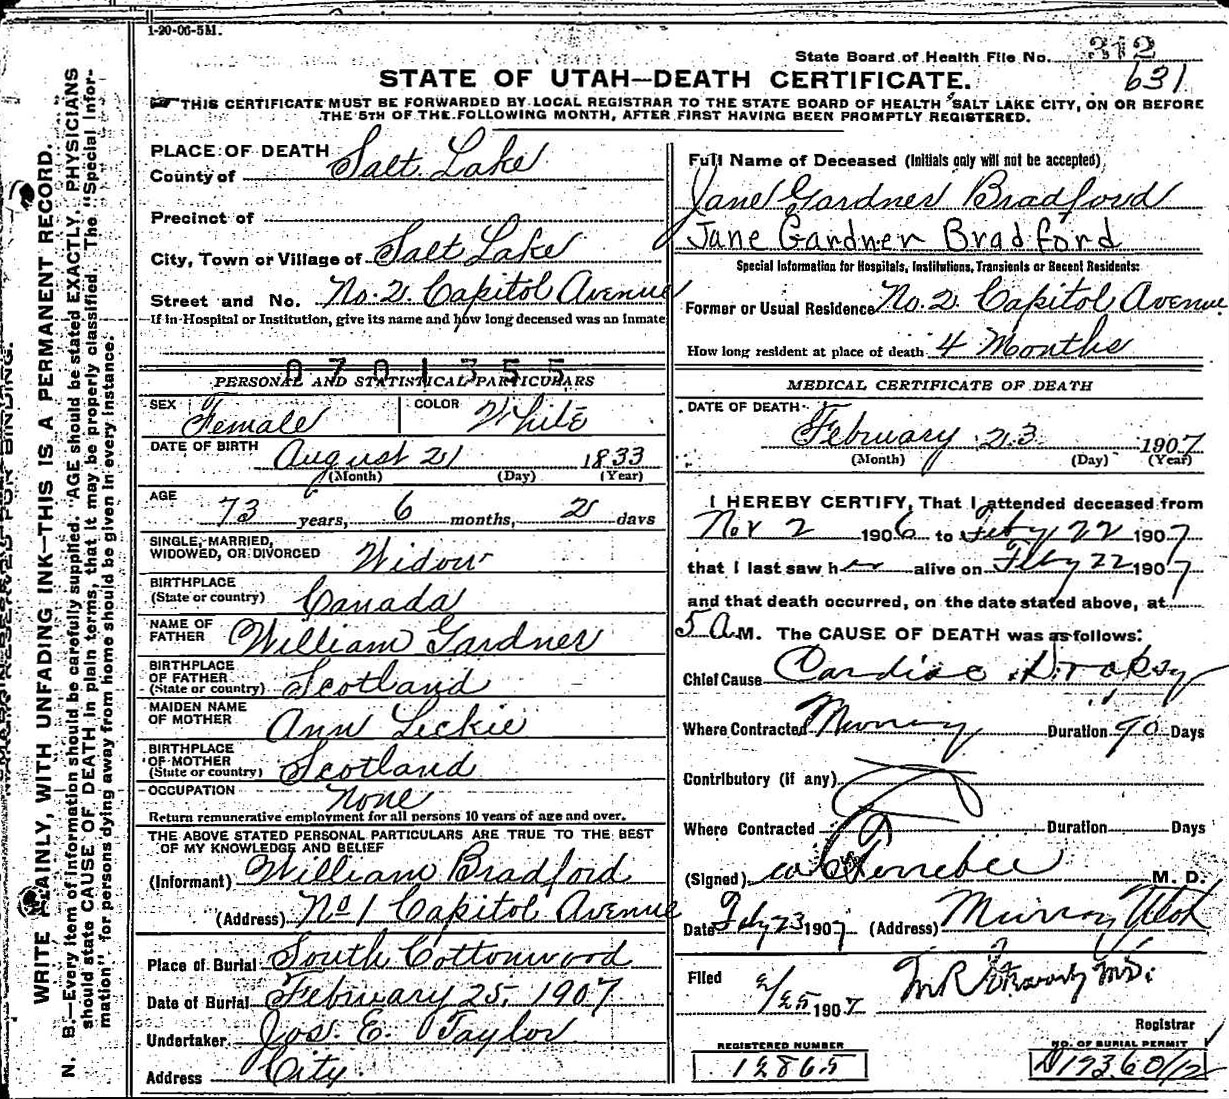 1-20-06-5M.
State Board of Health File No. 312
631
STATE OF UTAH—DEATH CERTIFICATE.
THIS CERTIFICATE MUST BE FORWARDED BY LOCAL REGISTRAR TO THE STATE BOARD OF HEALTH SALT LAKE CITY, ON OR BEFORE
THE 5TH OF THE FOLLOWING MONTH, AFTER FIRST HAVING BEEN PROMPTLY REGISTERED.
PLACE OF DEATH
County of Salt Lake
Precinct of
City, Town or Village of Salt Lake
Street and No. No. 2 Capitol Avenue
If in Hospital or Institution, give its name and how long deceased was an inmate
0701355
PERSONAL AND STATISTICAL PARTICULARS
SEX Female COLOR White
DATE OF BIRTH August 21 1833
(Month) (Day) (Year)
AGE 73 years, 6 months, 2 days
SINGLE, MARRIED,
WIDOWED, OR DIVORCED Widow
BIRTHPLACE
(State or country) Canada
NAME OF
FATHER William Gardner
BIRTHPLACE
OF FATHER
(State or country) Scotland
MAIDEN NAME
OF MOTHER Ann Leckie
BIRTHPLACE
OF MOTHER
(State or country) Scotland
OCCUPATION None
Return remunerative employment for all persons 10 years of age and over.
THE ABOVE STATED PERSONAL PARTICULARS ARE TRUE TO THE BEST
OF MY KNOWLEDGE AND BELIEF
(Informant) William Bradford
(Address) No 1 Capitol Avenue
Place of Burial South Cottonwood
Date of Burial February 25, 1907
Undertaker Jos. E. Taylor
Address City
Full Name of Deceased (Initials only will not be accepted)
Jane Gardner Bradford
Jane Gardner Bradford
Special Information for Hospitals, Institutions, Transients or Recent Residents:
Former or Usual Residence No. 2 Capitol Avenue
How long resident at place of death 4 Months
MEDICAL CERTIFICATE OF DEATH
DATE OF DEATH
February 23 1907
(Month) (Day) (Year)
I HEREBY CERTIFY, That I attended deceased from
Nov 2 1906 to Feby 22 1907
that I last saw her alive on Feby 22 1907
and that death occurred, on the date stated above, at
5 A M. The CAUSE OF DEATH was as follows:
Chief Cause Cardiac Dropsy
Where Contracted Murray Duration 90 Days
Contributory (if any)
Where Contracted Duration Days
(Signed) M. D.
Date Feby 23 1907 (Address) Murray Utah
Filed 2/25 1907 M.D.
Registrar
REGISTERED NUMBER
12865
NO. OF BURIAL PERMIT
WRITE PLAINLY, WITH UNFADING INK—THIS IS A PERMANENT RECORD.
N. B.—Every item of information should be carefully supplied. AGE should be stated EXACTLY. PHYSICIANS
should state CAUSE OF DEATH in plain terms, that it may be properly classified. The "Special Infor-
mation" for persons dying away from home should be given in every instance.